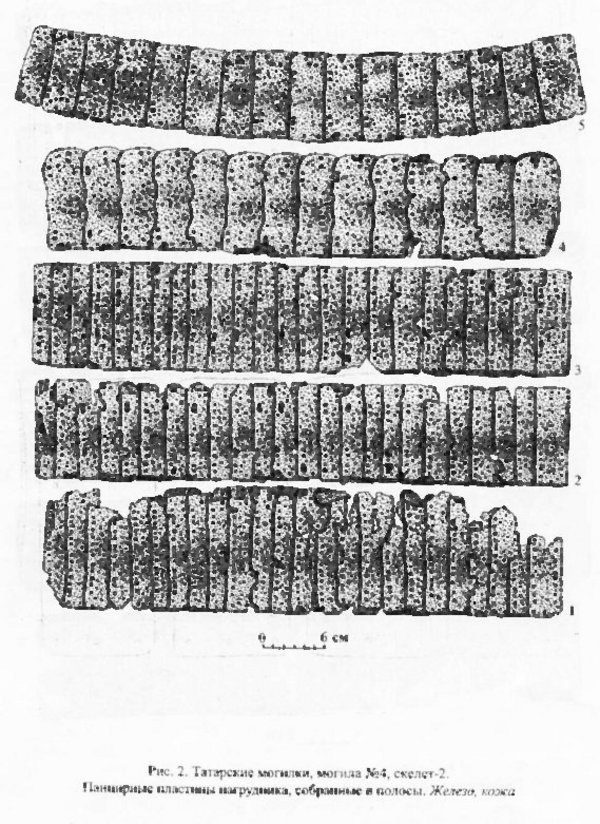 5
4
3
2
1
0 6 см
Рис. 2. Татарские могилки, могила №4, скелет-2.
Панцирные пластины нагрудника, собранные в полосы. Железо, кожа